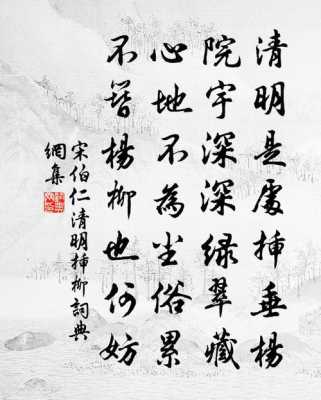 清明是處插垂楊
院宇深深綠翠藏
心地不為塵俗累
不簪楊柳也何妨
宋伯仁清明插柳詞典
網集